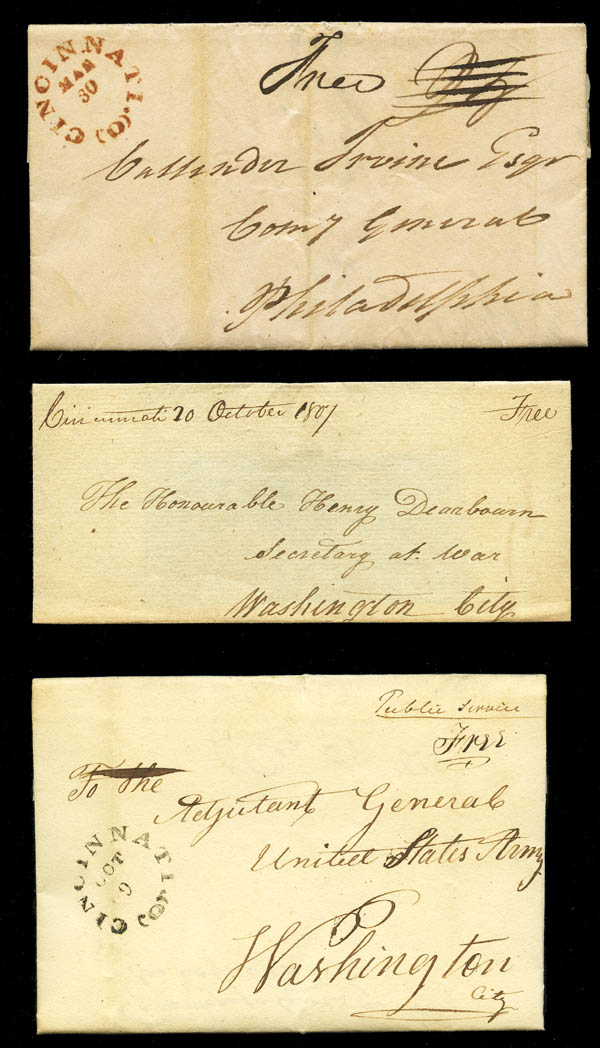 CINCINNATI.(O)
MAR
30
Free
Callender Irvine Esqr
Comy General
Philadelphia
Cincinnati 20 October 1807
Free
The Honourable Henry Dearbourn
Secretary at War
Washington City
Public Service
Free
To the
Adjutant General
United States Army
CINCINNATI.(O)
OCT
9
Washington
City